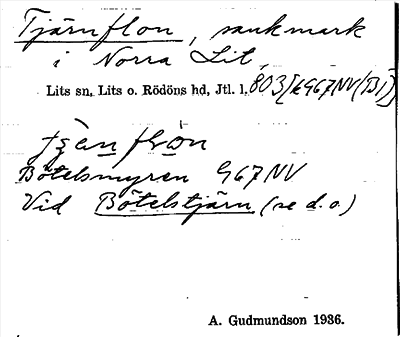 Tjärnflon, sankmark
i Norra Lit,
Lits sn, Lits o. Rödöns hd, Jtl. l. 803 [k967NV(B1)]
Bötelsmyren 967 NV
Vid Bötelstjärn (se d.o.)
A. Gudmundson 1936.